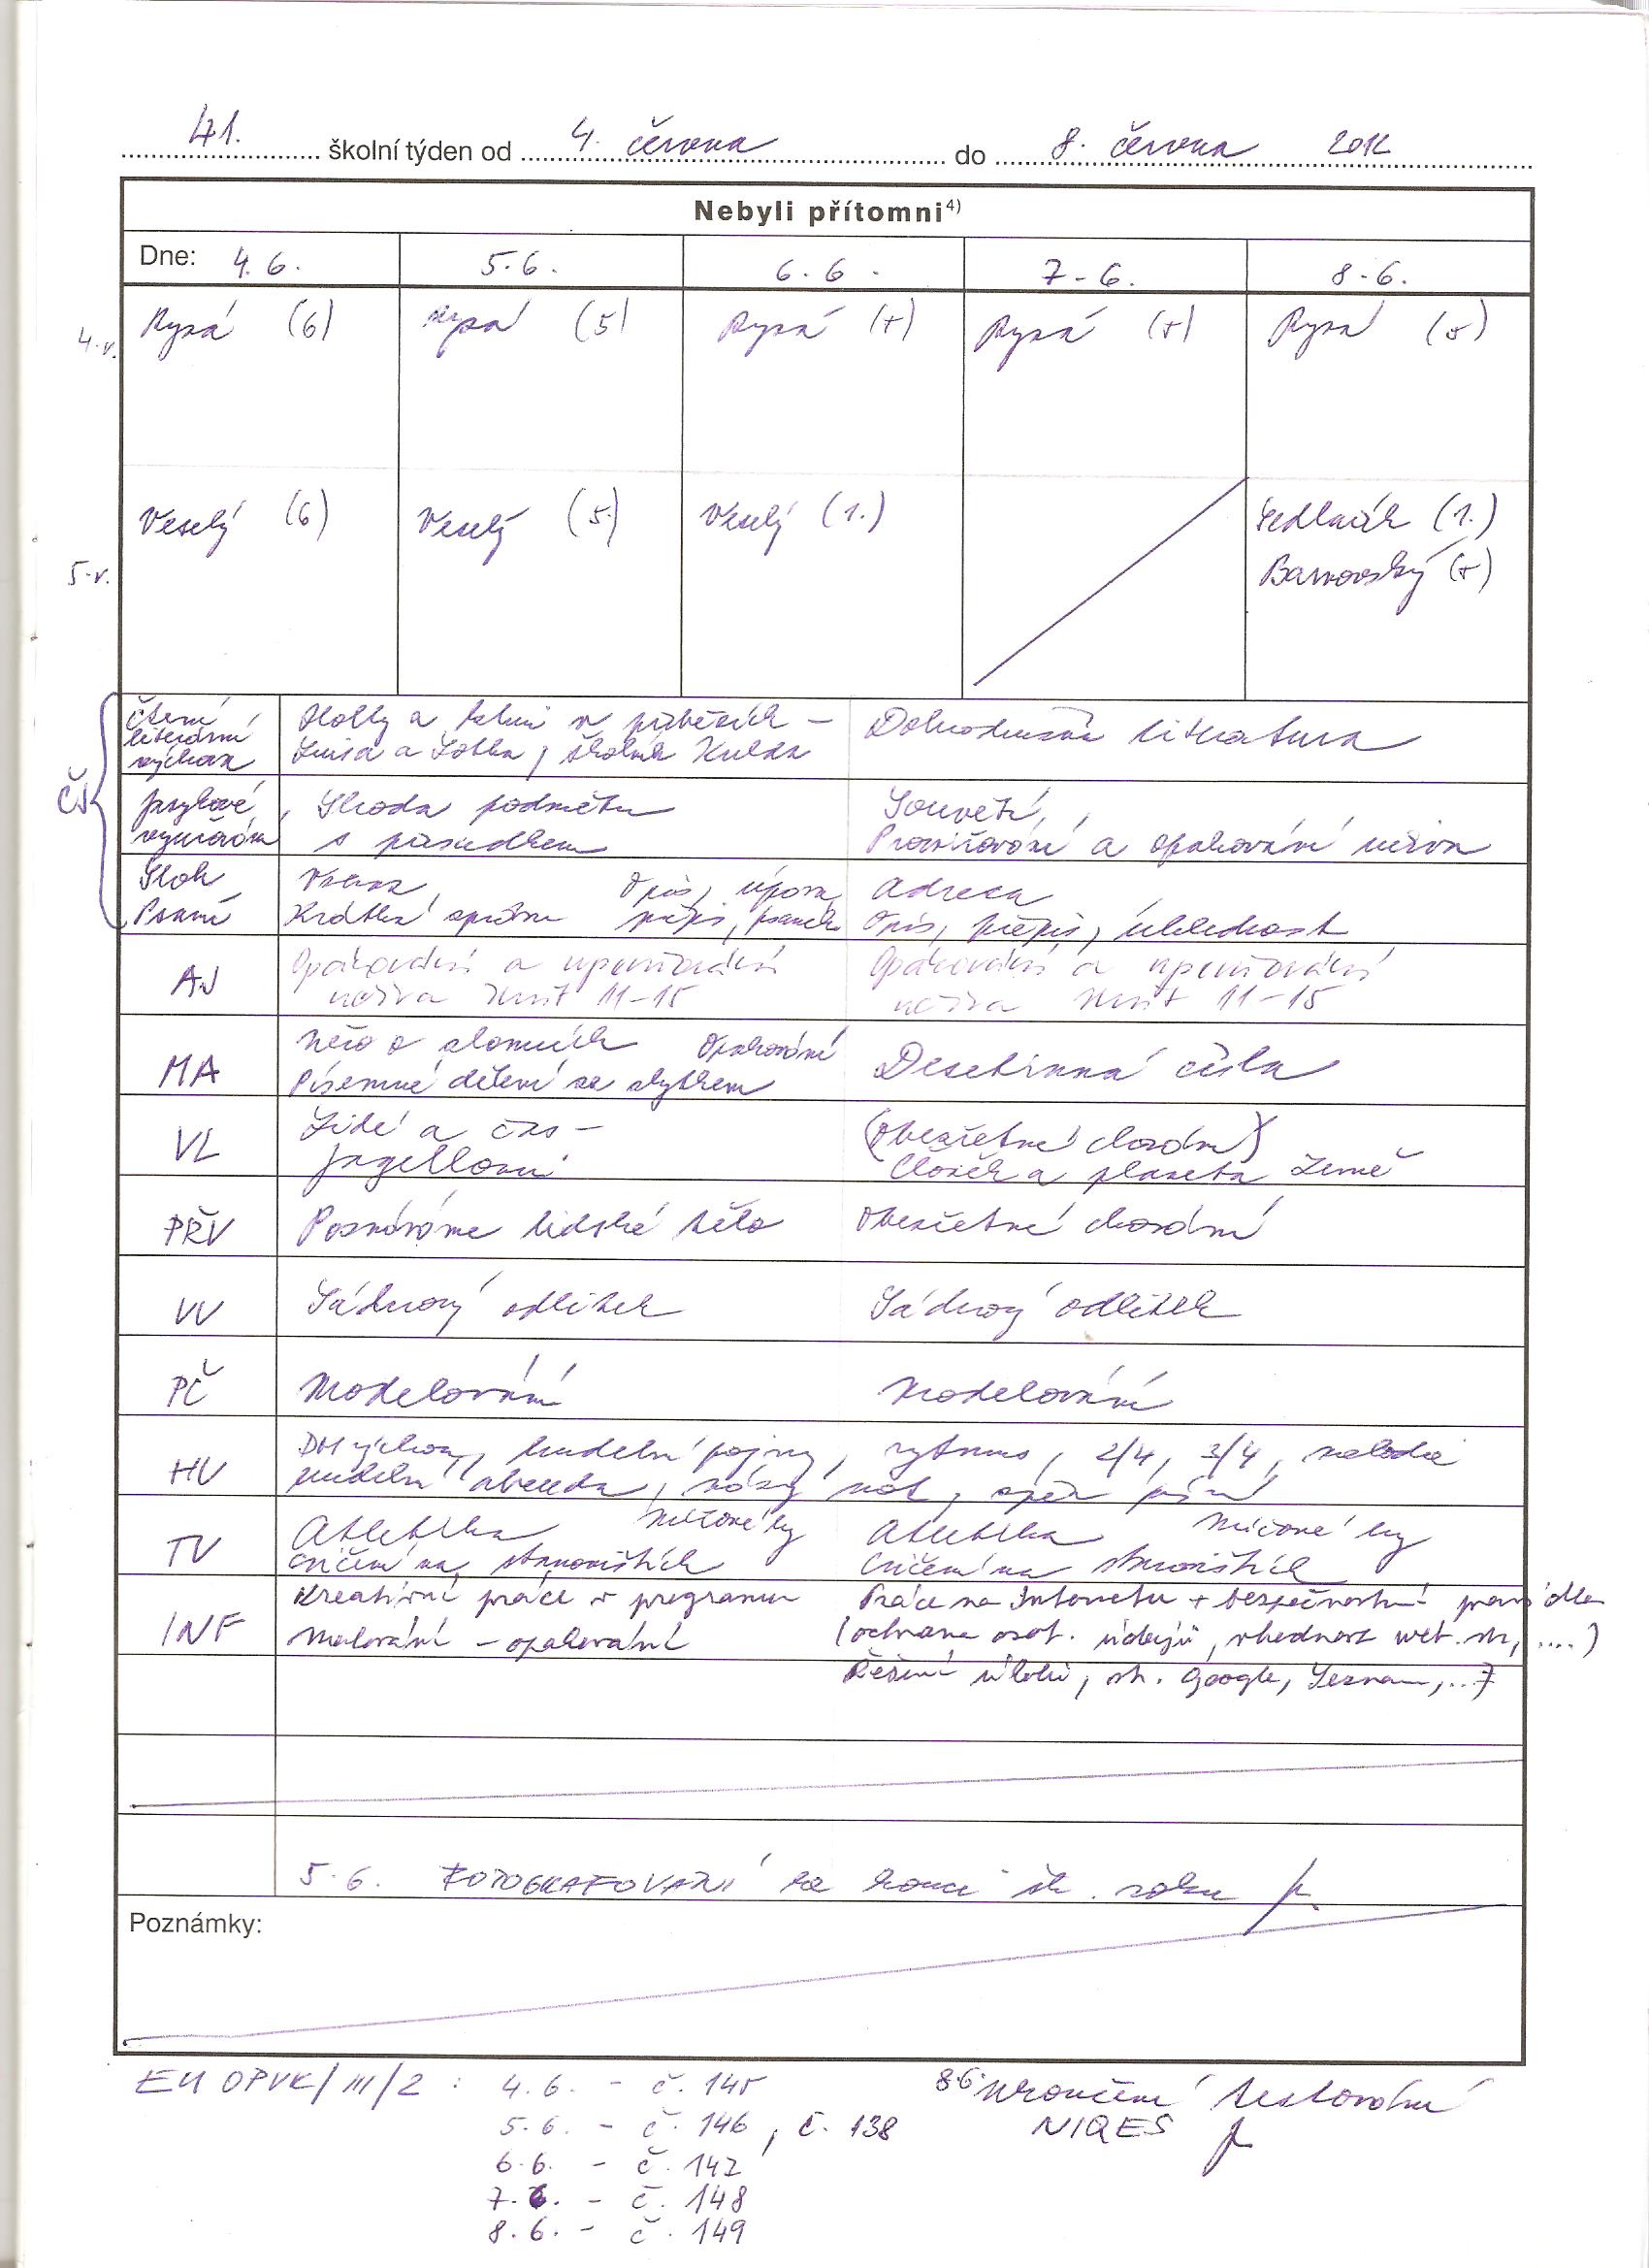 41. školní týden od 4. června do 8. června 2012
Nebyli přítomni4)
Dne: 4. 6. 5. 6. 6. 6. 7. 6. 8. 6.
4. r. Rysá (6) Rysá (5) Rysá (+) Rysá (+) Rysá (+)
Veselý (6) Veselý (5) Veselý (1.) Sedláček (1.)
5. r. (+)
ČJ
Čtení literární výchova
Holky a kluci v příbězích –
Luisa a Lotka, školník Kulda
Dobrodružná literatura
Jazykové
Shoda podmětu
s přísudkem
Souvětí,
Procvičování a opakování učiva
Sloh
Psaní
Vzkaz
Krátká zpráva
Opis, úprava
přepis,
Adresa
Opis, přepis, úhlednost
AJ
Opakování a upevňování
učiva Unit 11–15
Opakování a upevňování
učiva Unit 11–15
MA
Něco o zlomcích Opakování
Písemné dělení se zbytkem
Desetinná čísla
VL
Lidé a čas –
Jagellonci
(Ohleduplné chování)
Člověk a planeta Země
PŘV
Poznáváme lidské tělo
chování
VV
Sádrový odlitek
Sádrový odlitek
PČ
Modelování
Modelování
HV
hudební pojmy, rytmus, 2/4, 3/4, melodie
hudební abeceda, názvy not, zpěv písní
TV
Atletika Míčové hry
cvičení na stanovištích
Atletika Míčové hry
cvičení na stanovištích
INF
Kreativní práce v programu
Malování – opakování
Práce na Internetu + bezpečnostní pravidla
(ochrana osob. údajů, vhodnost web. str, ....)
Řešení úkolů, str. Google, Seznam,...)
5. 6. FOTOGRAFOVÁNÍ ke konci šk. roku
Poznámky:
EU OPVK/III/2 : 4. 6. – č. 145
5. 6. – č. 146, č. 138
6. 6. – č. 147
7. 6. – č. 148
8. 6. – č. 149
8. 6. Ukončení testování
NIQES